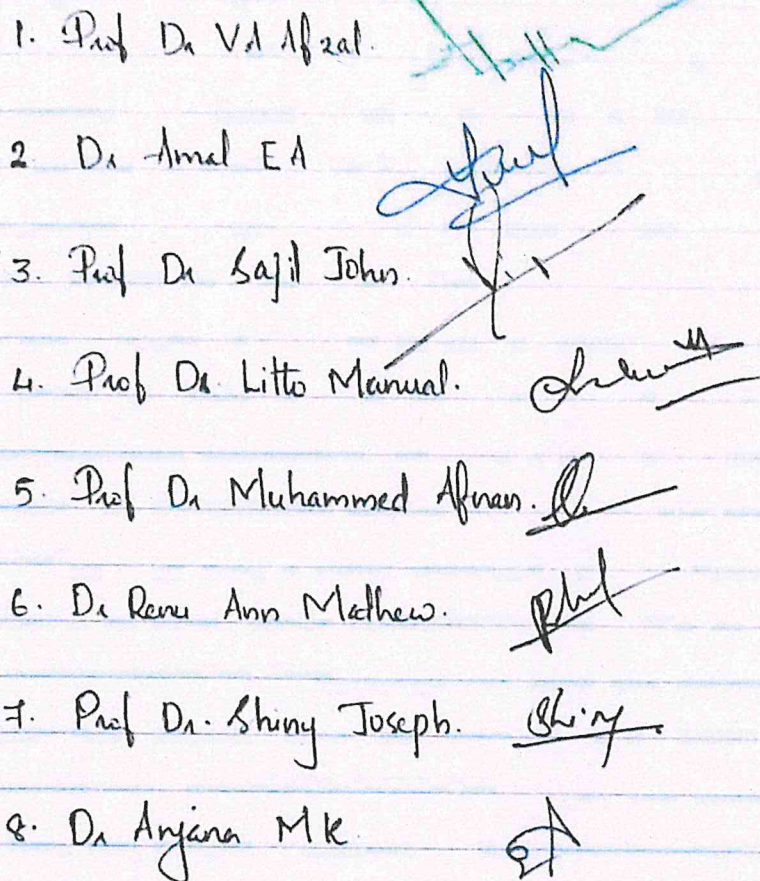 1. Prof Dr VA Afzal.
2 Dr Amal EA
3. Prof Dr Sajil John.
4. Prof Dr. Litto Manual.
5. Prof Dr Muhammed Afnan.
6. Dr Renu Ann Mathew.
7. Prof Dr. Shiny Joseph. Shiny
8. Dr Anjana MK